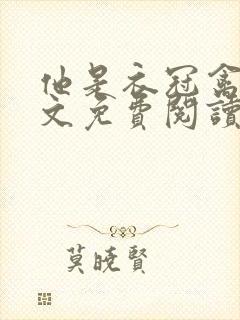 他是衣冠禽
文免費閱讀
莫曉賢